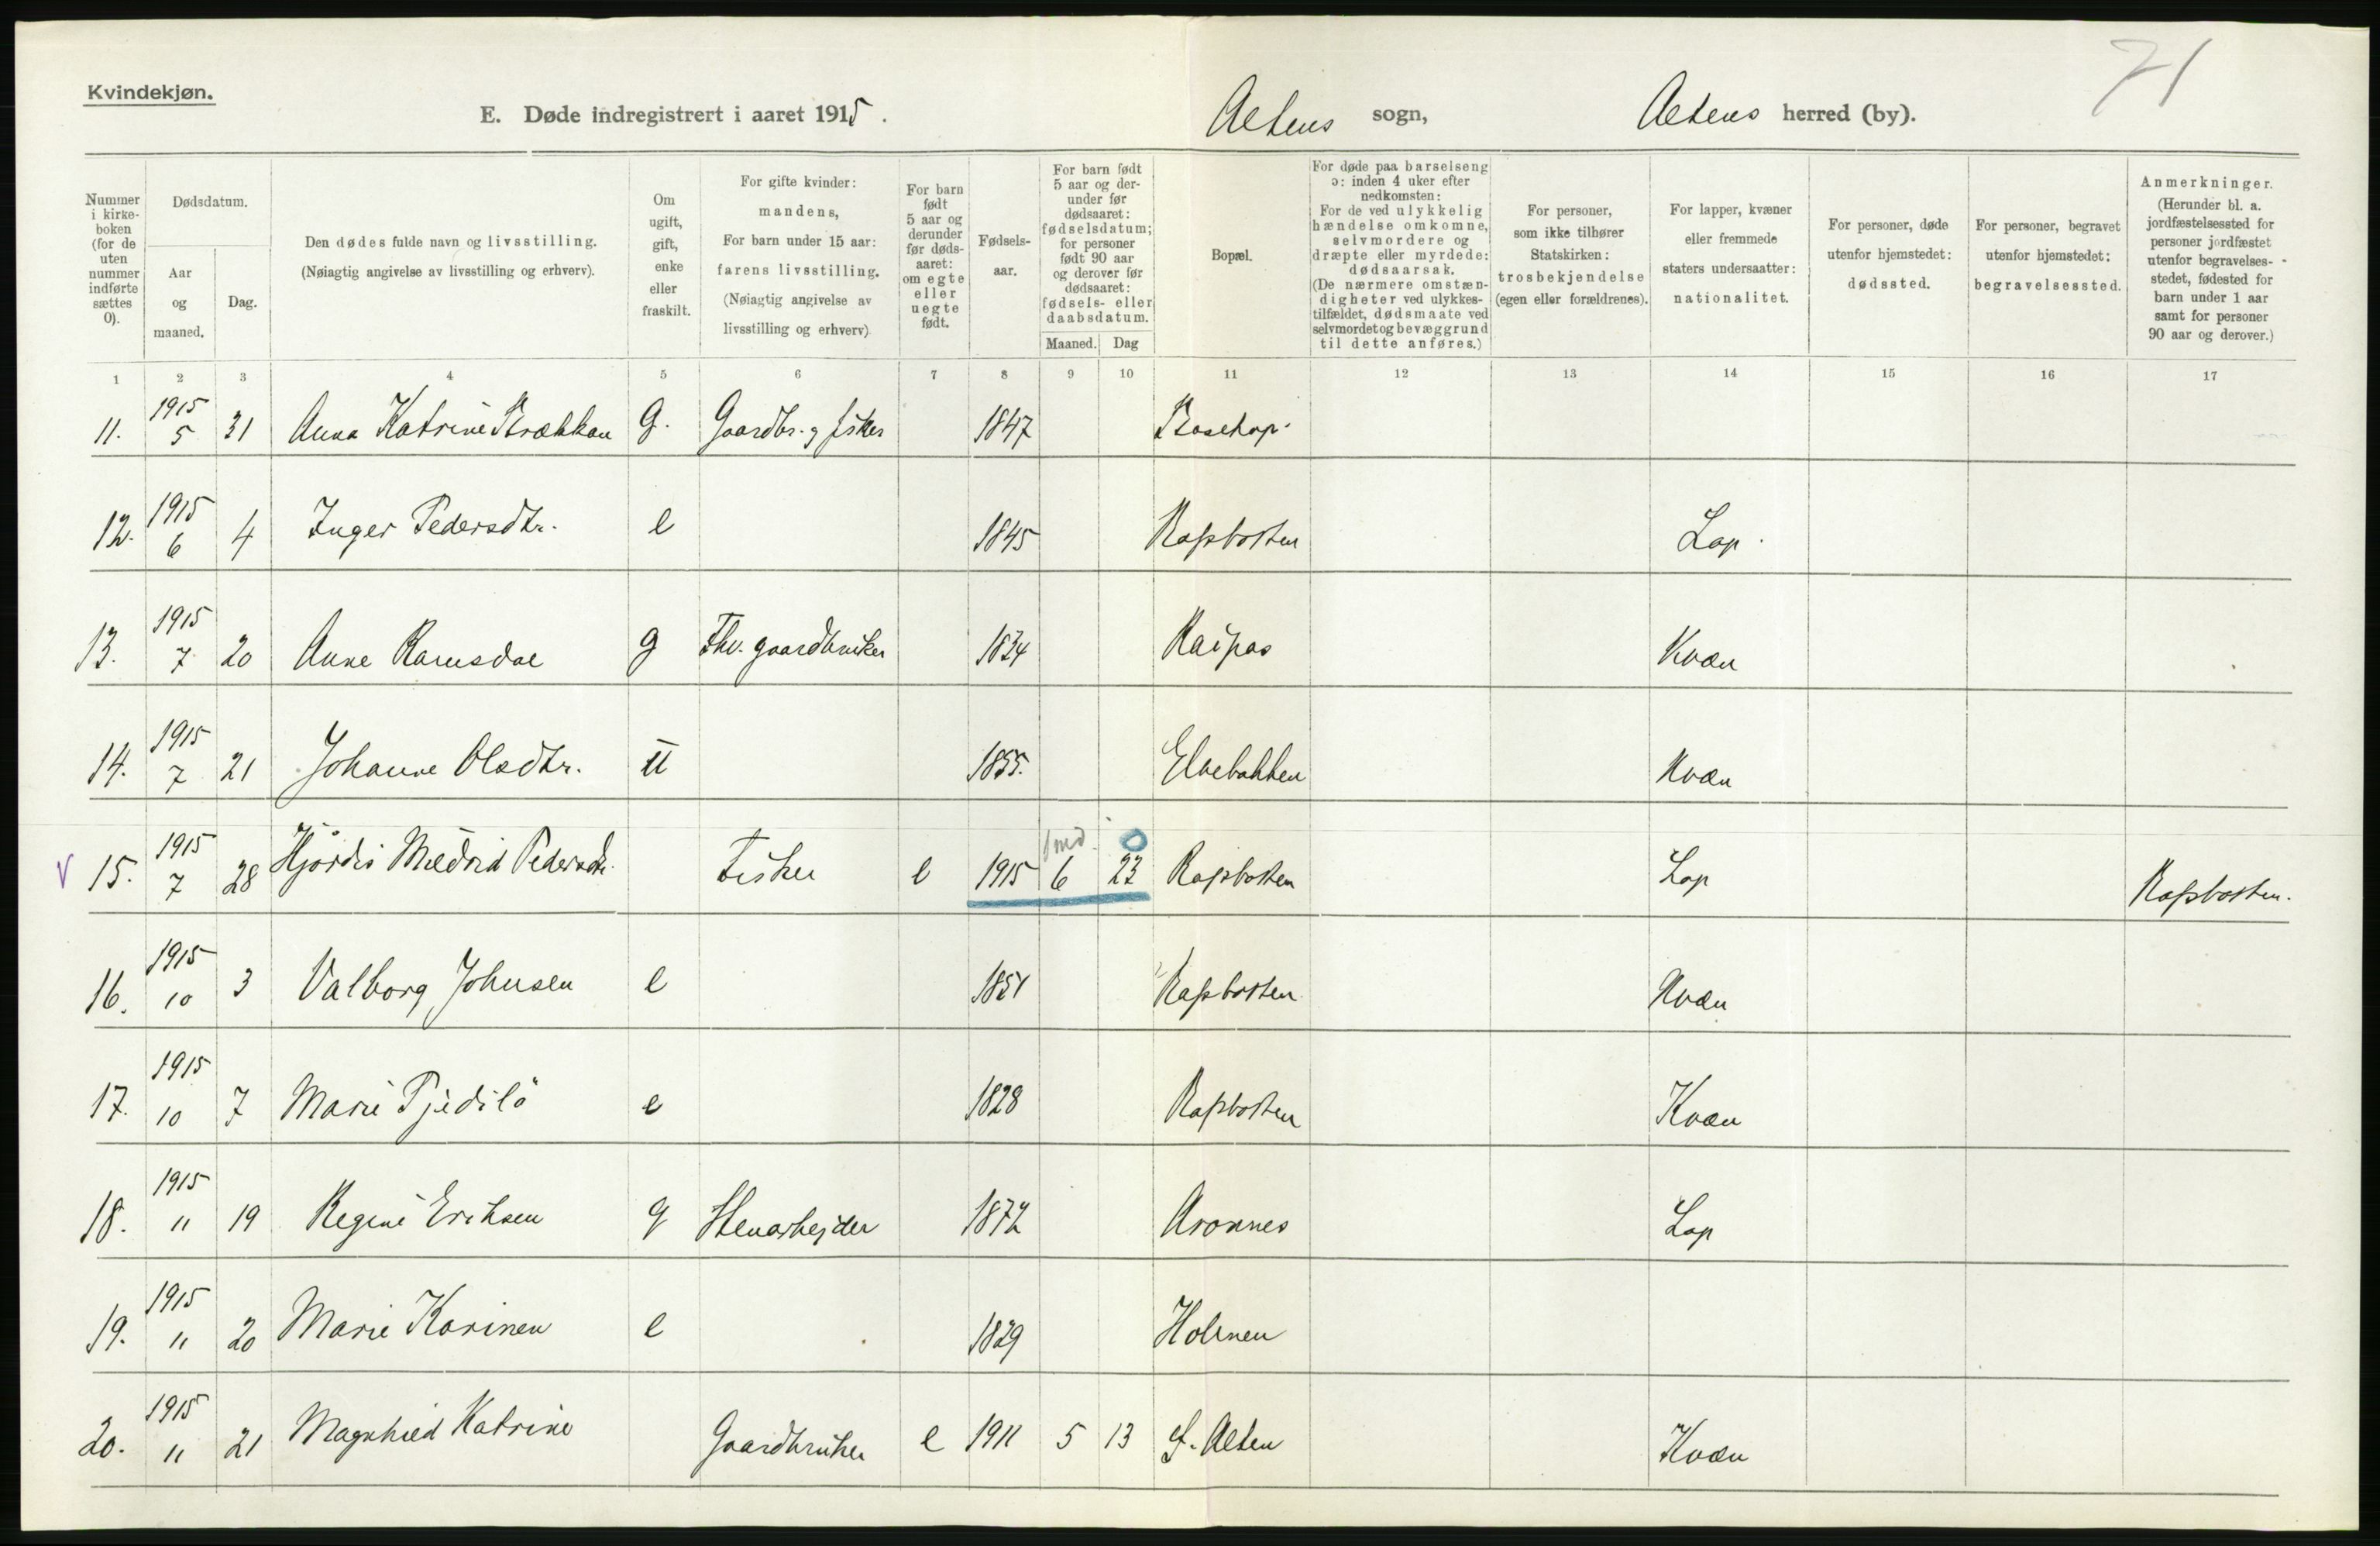 Kvindekjøn.
71
E. Døde indregistrert i aaret 1915.
Altens sogn, Altens herred (by).
Nummer i kirke-boken (for de uten nummer indførte sættes 0).
Dødsdatum.
Aar og maaned.
Dag.
Den dødes fulde navn og livsstilling.
(Nøiagtig angivelse av livsstilling og erhverv).
Om ugift, gift, enke eller fraskilt.
For gifte kvinder: mandens,
For barn under 15 aar: farens livsstilling.
(Nøiagtig angivelse av livsstilling og erhverv)
For barn født 5 aar og derunder før døds-aaret: om egte eller uegte født.
Fødsels-aar.
For barn født 5 aar og der-under før dødsaaret: fødselsdatum; for personer født 90 aar og derover før dødsaaret: fødsels- eller daabsdatum.
Maaned. Dag
Bopæl.
For døde paa barselseng ɔ: inden 4 uker efter nedkomsten:
For de ved ulykkelig hændelse omkomne, selvmordere og dræpte eller myrdede: dødsaarsak.
(De nærmere omstæn-digheter ved ulykkes-tilfældet, dødsmaate ved selvmordet og bevæggrund til dette anføres.)
For personer, som ikke tilhører Statskirken: trosbekjendelse (egen eller forældrenes).
For lapper, kvæner eller fremmede staters undersaatter: nationalitet.
For personer, døde utenfor hjemstedet: dødssted.
For personer, begravet utenfor hjemstedet: begravelsessted.
Anmerkninger.
(Herunder bl. a. jordfæstelsessted for personer jordfæstet utenfor begravelses-stedet, fødested for barn under 1 aar samt for personer 90 aar og derover.)
1 2 3 4 5 6 7 8 9 10 11 12 13 14 15 16 17
11. 1915 5 31 Anna Katrine G. Gaardbr. og fisker 1847 Bosekop.
12. 1915 6 4 Inger Pedersdtr. e 1845 Rafsbotten Lap.
13. 1915 7 20 Anne Ramsdal g Fhv. gaardbruker 1834 Raipas Kvæn
14. 1915 7 21 Johanne Olsdtr. u 1855. Elvebakken Kvæn
V 15. 1915 7 28 Hjørdis Mildrid Pedersdtr. Fisker e 1915 6 23 Rafsbotten Lap Rafsbotten.
1 md. 0
16. 1915 10 3 Valborg Johnsen e 1851 Rafsbotten Kvæn
17. 1915 10 7 Marie e 1828 Rafsbotten Kvæn
18. 1915 11 19 Regine Eriksen g Stenarbejder 1872 Aronnes Lap
19. 1915 11 20 Marie Karinen e 1829 Holmen
20. 1915 11 21 Magnhild Katrine Gaardbruker e 1911 5 13 Alten Kvæn